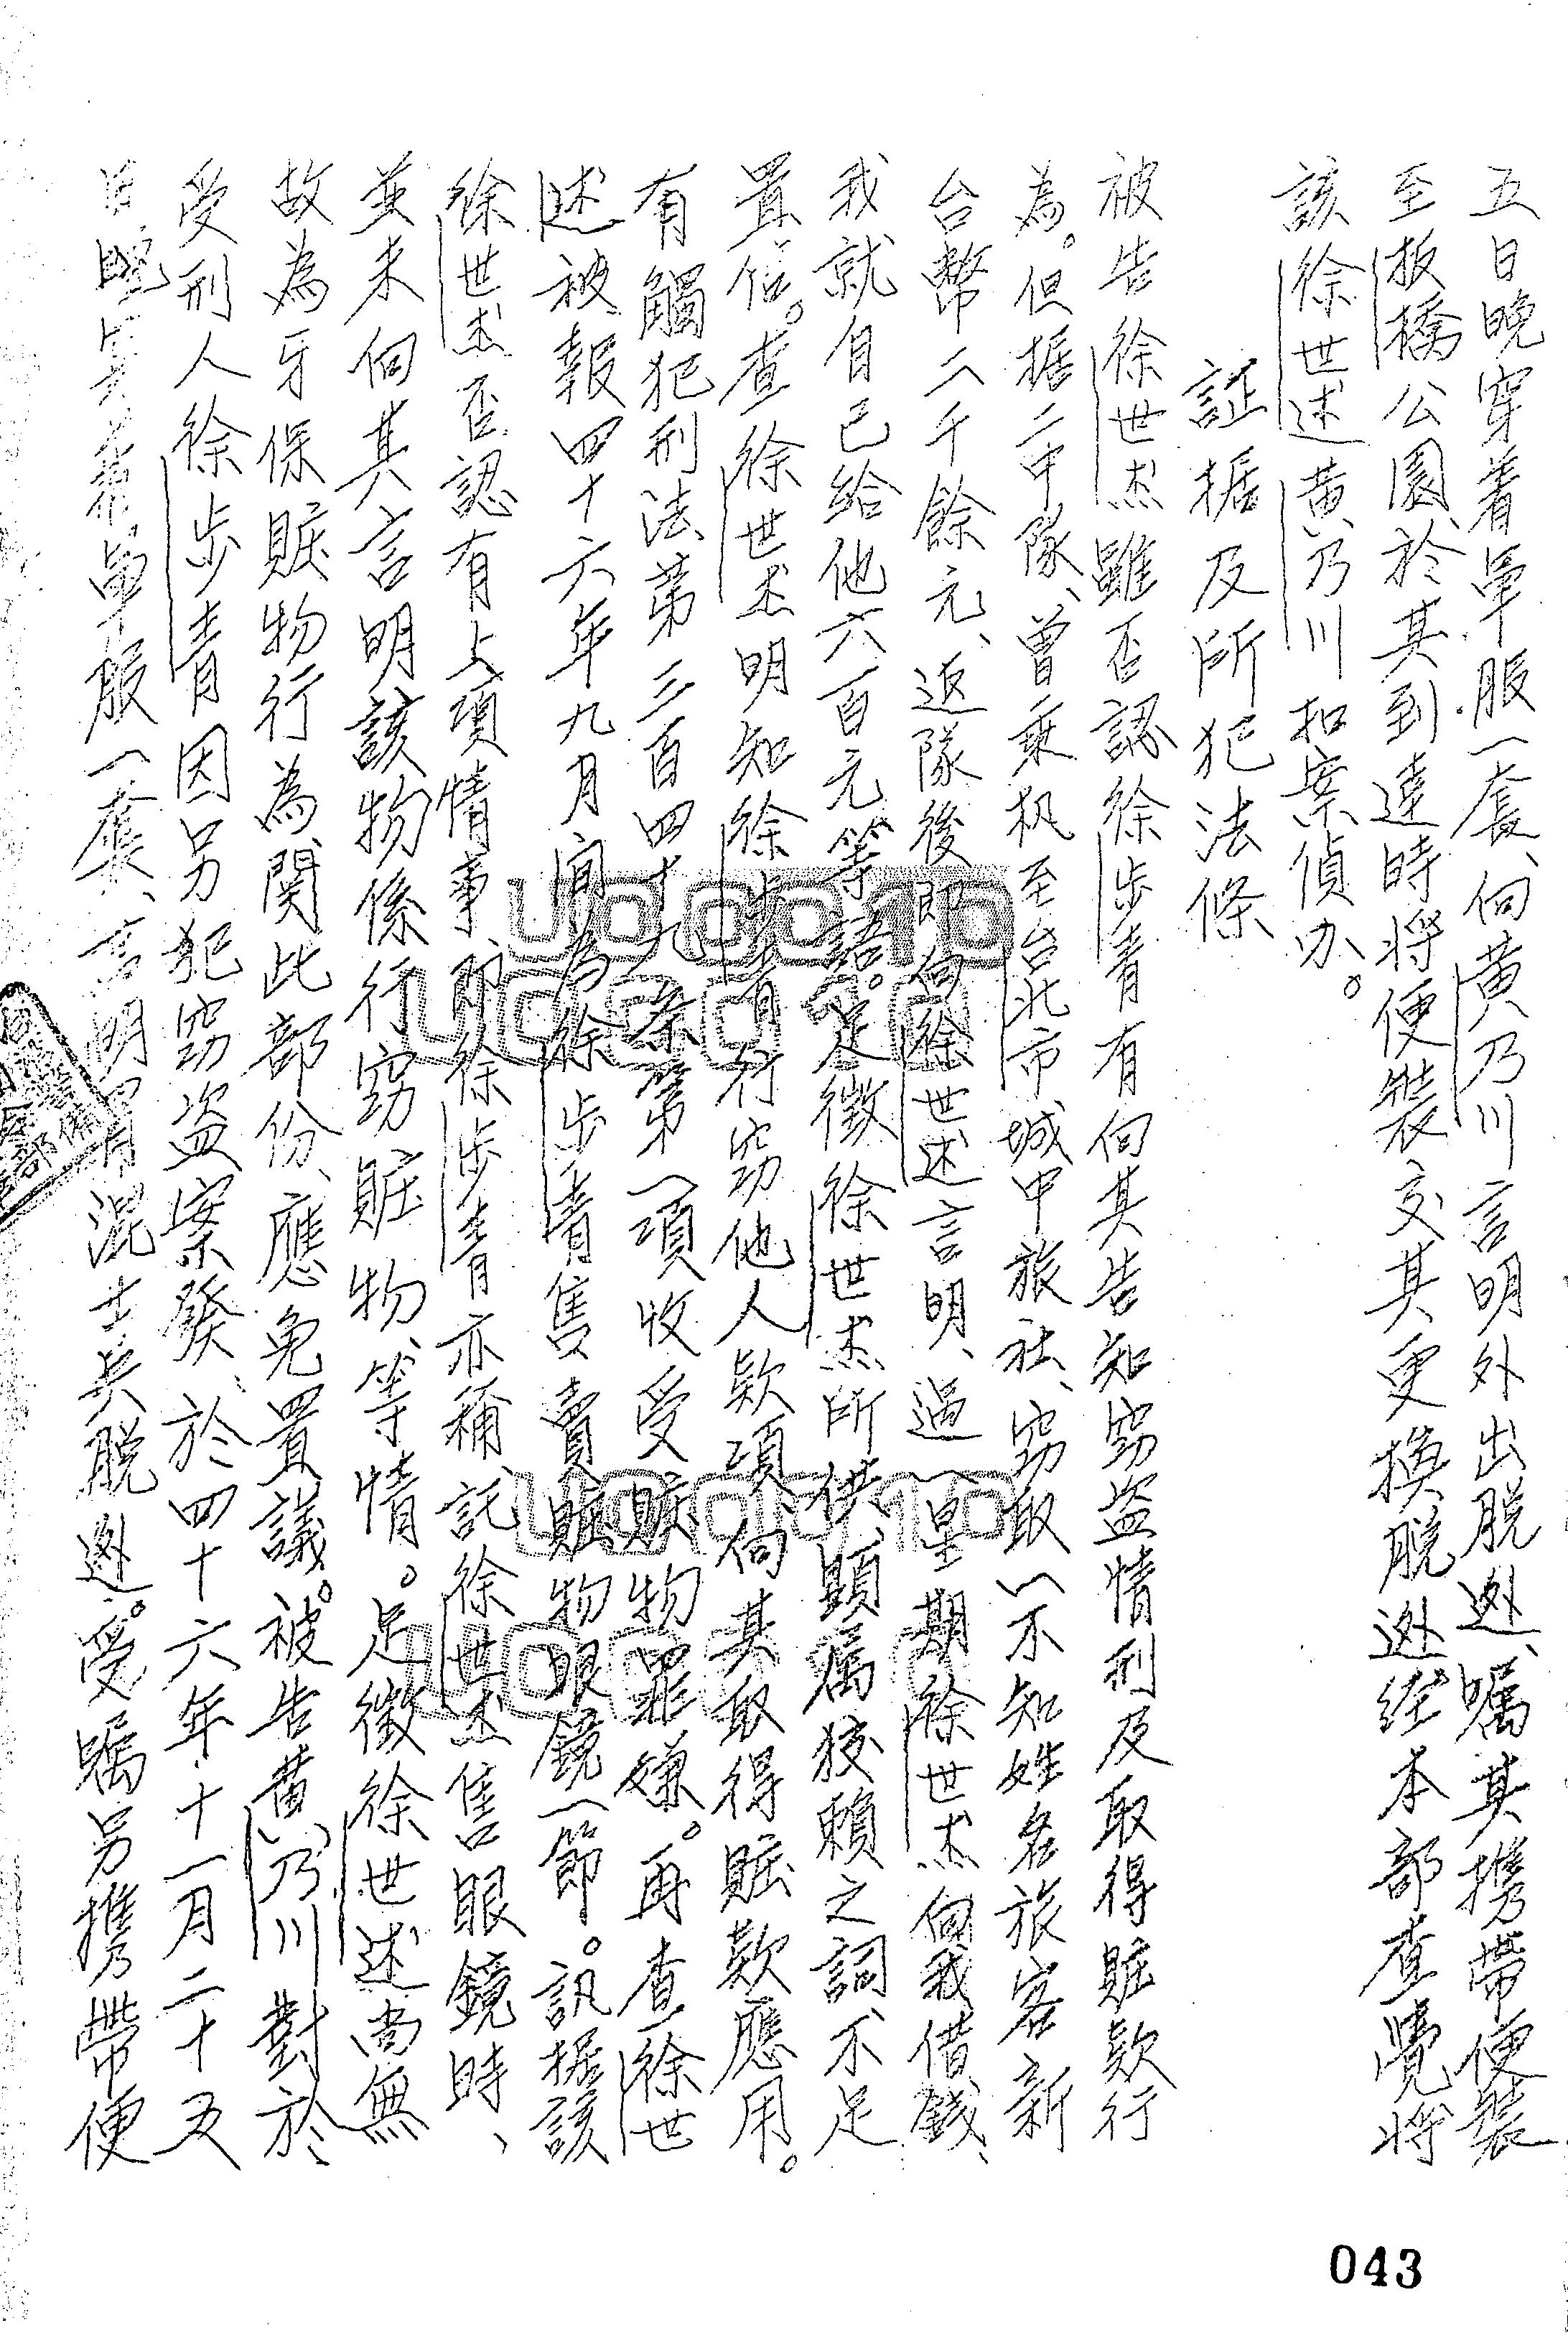 五日晚穿着軍服一套、向黃乃川言明外出脫逃、囑其携帶便裝
至板橋公園於其到達時將便裝交其更換脫逃経本部查覺將
該徐世述黃乃川扣案偵办。
証据及所犯法條
被告徐世杰雖否認徐步青有向其告知窃盜情刑及取得賍欵行
為。但据二中隊、曾乘机至台北市城中旅社、窃取一不知姓名旅客新
台幣二千餘元、返隊後即向徐世述言明、過一星期徐世杰向我借錢、
我就自己給他六百元等語。足徵徐世杰所供、顯属狡賴之詞不足
置信。查徐世杰明知徐步青行窃他人欵項、向其取得賍欵應用。
有觸犯刑法第三百四十九条第一項收受賍物罪嫌。再查徐世
述被報四十六年九月间為徐步青售賣賍物眼鏡一節。訊据該
徐世杰否認有上項情事、即徐步青亦稱託徐世杰售眼鏡時、
並未向其言明該物係行窃賍物、等情。足徵徐世述尚無
故為牙保賍物行為、関此部份、應免置議。被告黃乃川對於
受刑人徐步青因另犯窃盜案發、於四十六年十一月二十五
日晚軍服一套、言明混士兵脫逃。受囑另携帶便
043